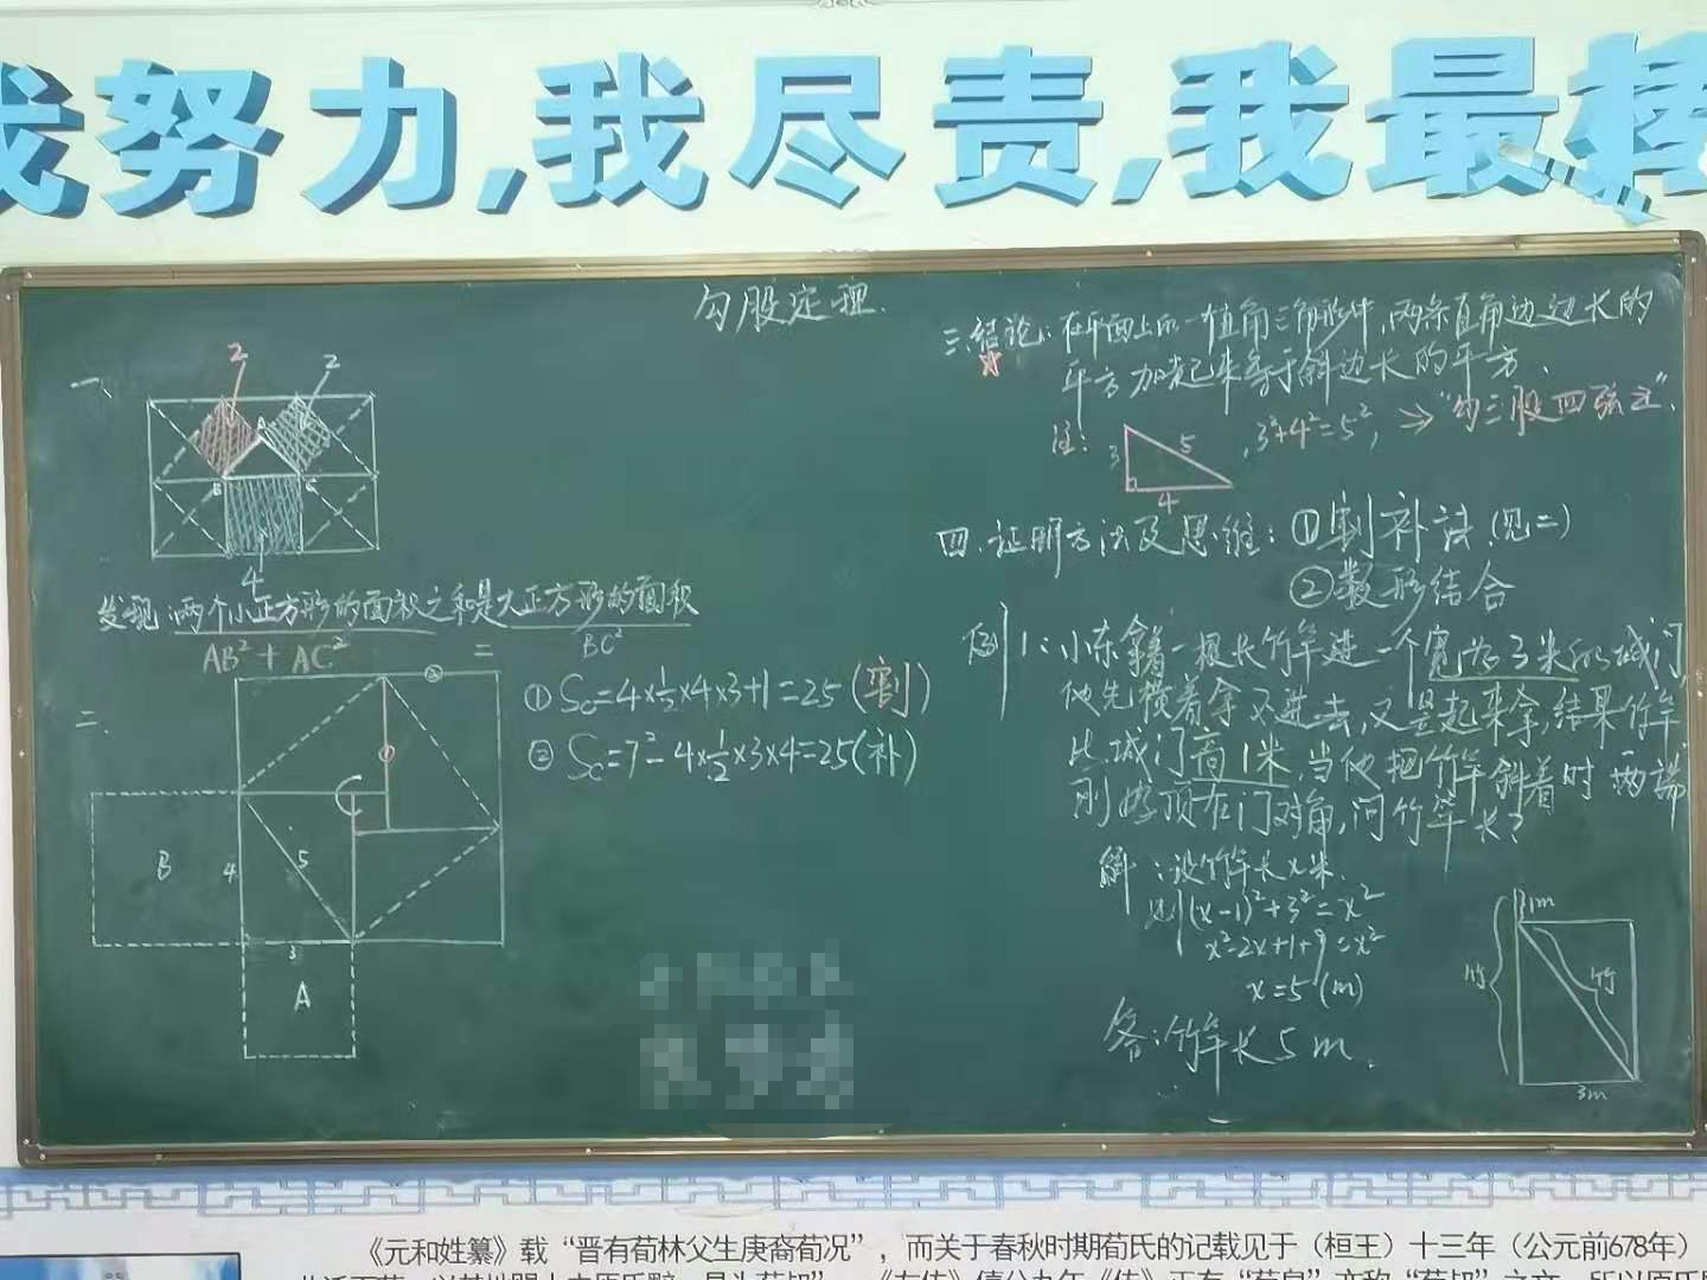 我努力,我尽责,我最棒
勾股定理.
一、
2
2
A
B
C
4
发现:两个小正方形的面积之和是大正方形的面积
AB²+AC² = BC²
二、
②
①
C
B
4
5
3
A
①Sc=4×½×4×3+1=25(割)
②Sc=7²-4×½×3×4=25(补)
三.结论:在平面上的一个直角三角形中,两条直角边边长的
平方加起来等于斜边长的平方.
注:
3
5
4
,3²+4²=5²,⇒“勾三股四弦五”.
四.证明方法及思维:①割补法(见二)
②数形结合
例1:小东拿着一根长竹竿进一个宽为3米的城门
他先横着拿不进去,又竖起来拿,结果竹竿
比城门高1米,当他把竹竿斜着时两端
刚好顶在门对角,问竹竿长?
解:设竹竿长x米.
则(x-1)²+3²=x²
x²-2x+1+9=x²
x=5(m)
答:竹竿长5m.
1m
竹
竹
3m
《元和姓纂》载“晋有荀林父生庚裔荀况”,而关于春秋时期荀氏的记载见于(桓王)十三年(公元前678年)